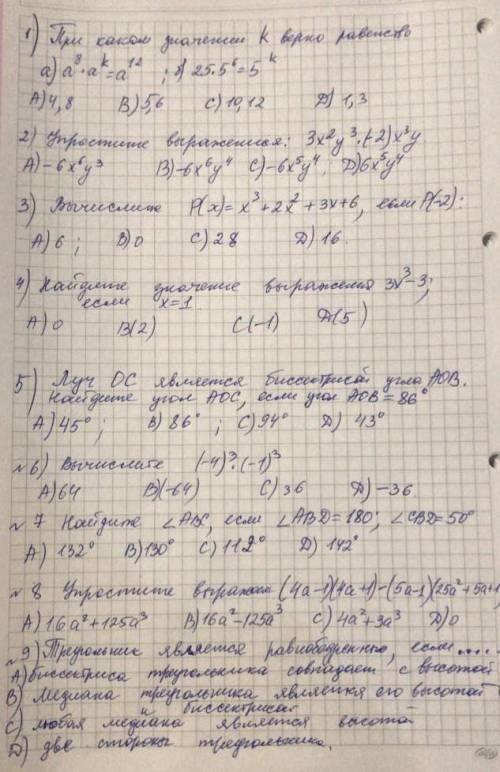 1) При каком значении k верно равенство
а) a⁸·aᵏ=a¹² ; б) 25·5⁶=5ᵏ
А) 4,8 В) 5,6 С) 10,12 Д) 1,3
2) Упростите выражения: 3x²y³·(-2)x³y
А) -6x⁶y³ В) -6x⁶y⁴ С) -6x⁵y⁴. Д) 6x⁵y⁴
3) Вычислите P(x)= x³+2x²+3x+6, если P(-2):
А) 6 ; В) 0 С) 28 Д) 16.
4) Найдите значение выражения 3x³-3;
если x=1.
А) 0 В(2) С(-1) Д(5)
5) Луч ОС является биссектрисой угла АОВ.
Найдите угол АОС, если угол АОВ = 86°
А) 45° ; В) 86° ; С) 94° Д) 43°
№6) Вычислите (-4)³·(-1)³
А) 64 В) (-64) С) 36 Д) -36.
№7 Найдите ∠АВС, если ∠ABD=180°; ∠CBD=50°
А) 132° В) 130° С) 112° D) 142°
№8 Упростите выражен (4a-1)(4a+1)-(5a-1)(25a²+5a+1
А) 16a²+125a³ В) 16a²-125a³ С) 4a²+3a³ Д) 0
№9) Треугольник является равнобедренным, если ....
А) биссектриса треугольника совпадает с высотой
В) Медиана треугольника является его высотой
и биссектрисой
С) любая медиана является высотой
Д) две стороны треугольника.